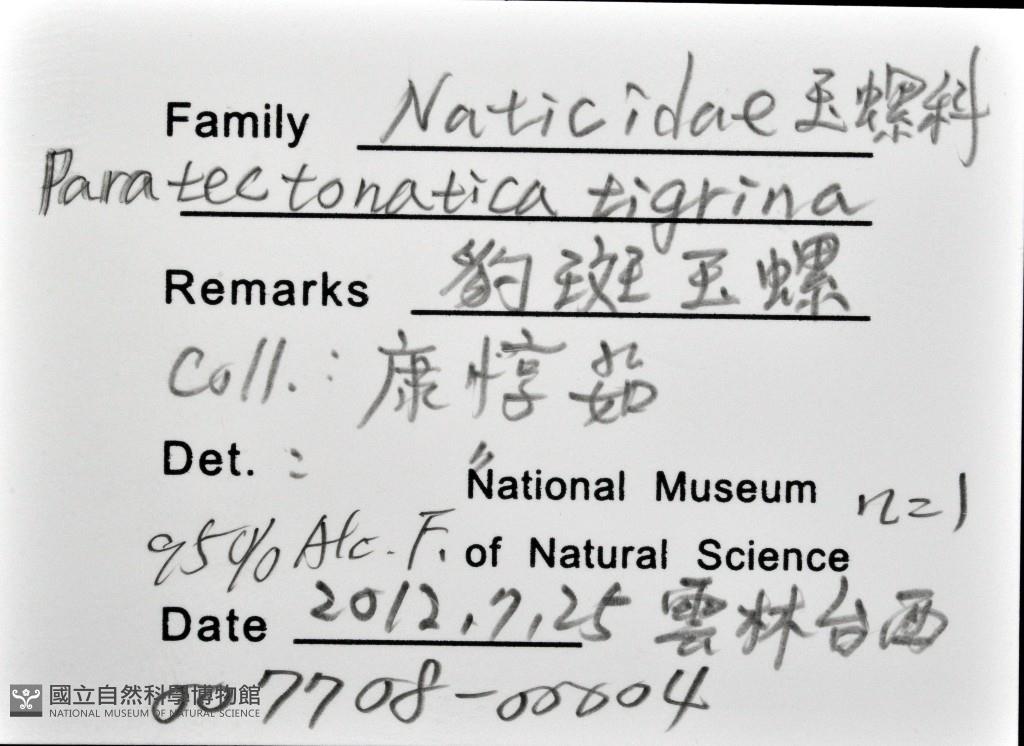 Family Naticidae 玉螺科
Paratectonatica tigrina
Remarks 豹斑玉螺
Coll. : 康惇茹
Det. : 〃
National Museum n=1
95% Alc. F. of Natural Science
Date 2012.7.25 雲林台西
007708-00004
國立自然科學博物館
NATIONAL MUSEUM OF NATURAL SCIENCE